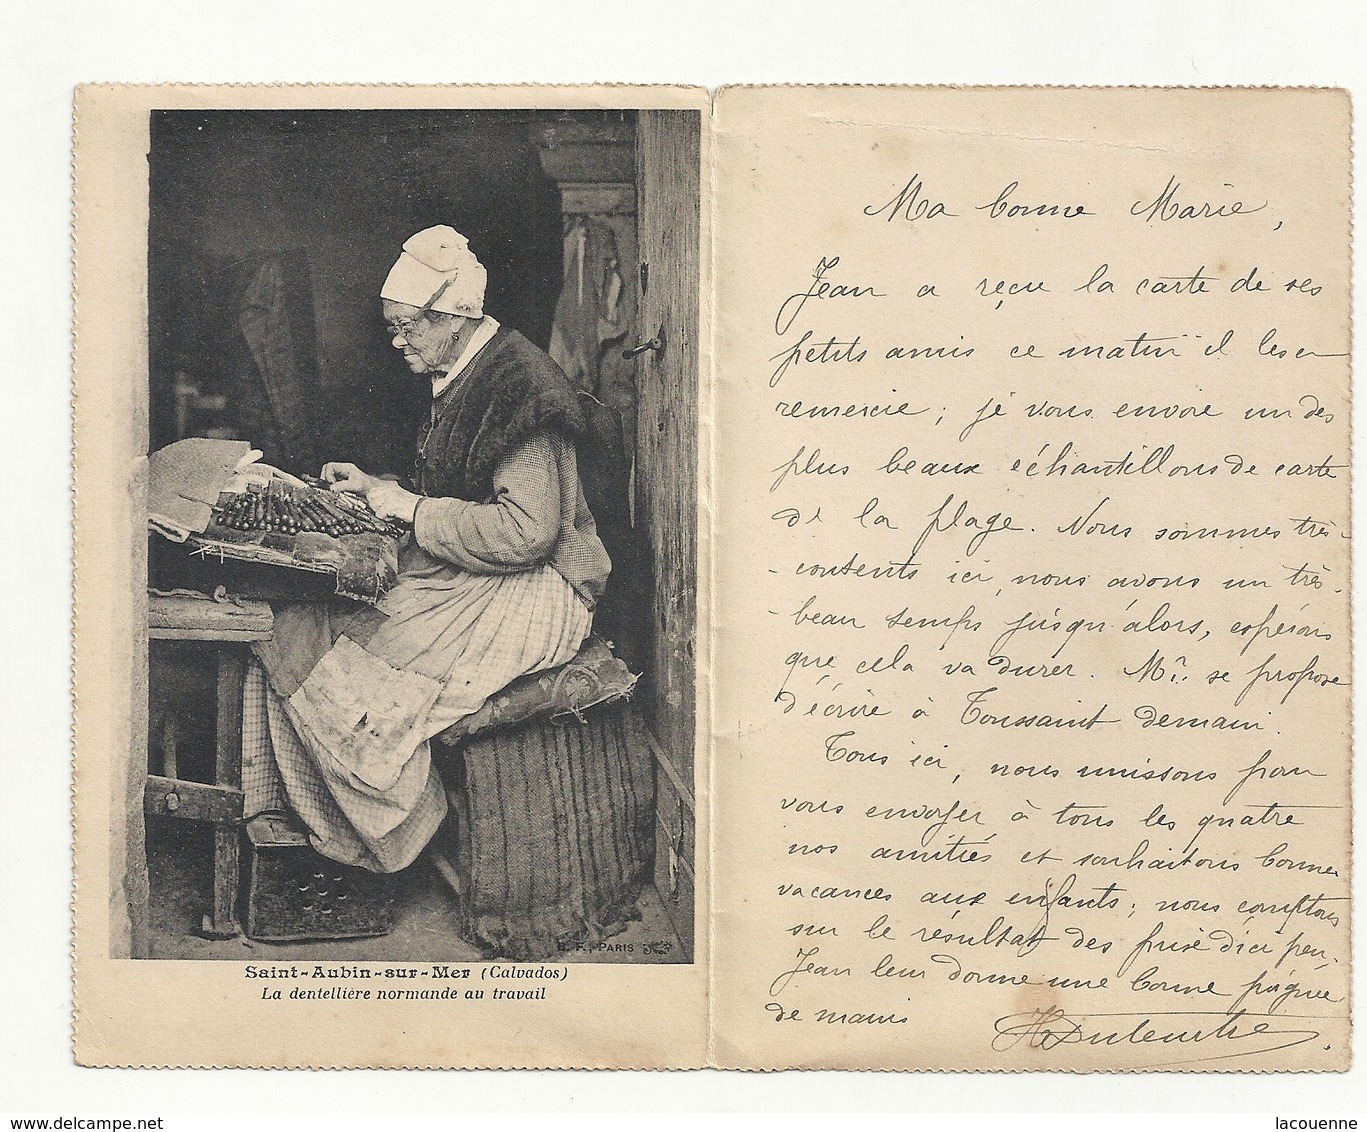 B. F. PARIS
Saint-Aubin-sur-Mer (Calvados)
La dentellière normande au travail
Ma bonne Marie,
Jean a reçu la carte de ses
petits amis ce matin il les en
remercie; je vous envoie un des
plus beaux échantillons de carte
de la plage. Nous sommes très-
contents ici, nous avons un très-
beau temps jusqu'alors, espérons
que cela va durer. Mr. se propose
d'écrire à Toussaint demain.
Tous ici, nous unissons pour
vous envoyer à tous les quatre
nos amitiés et souhaitons bonnes
vacances aux enfants; nous comptons
sur le résultat des prix d'ici peu,
Jean leur donne une bonne poignée
de mains
delcampe.net
lacouenne